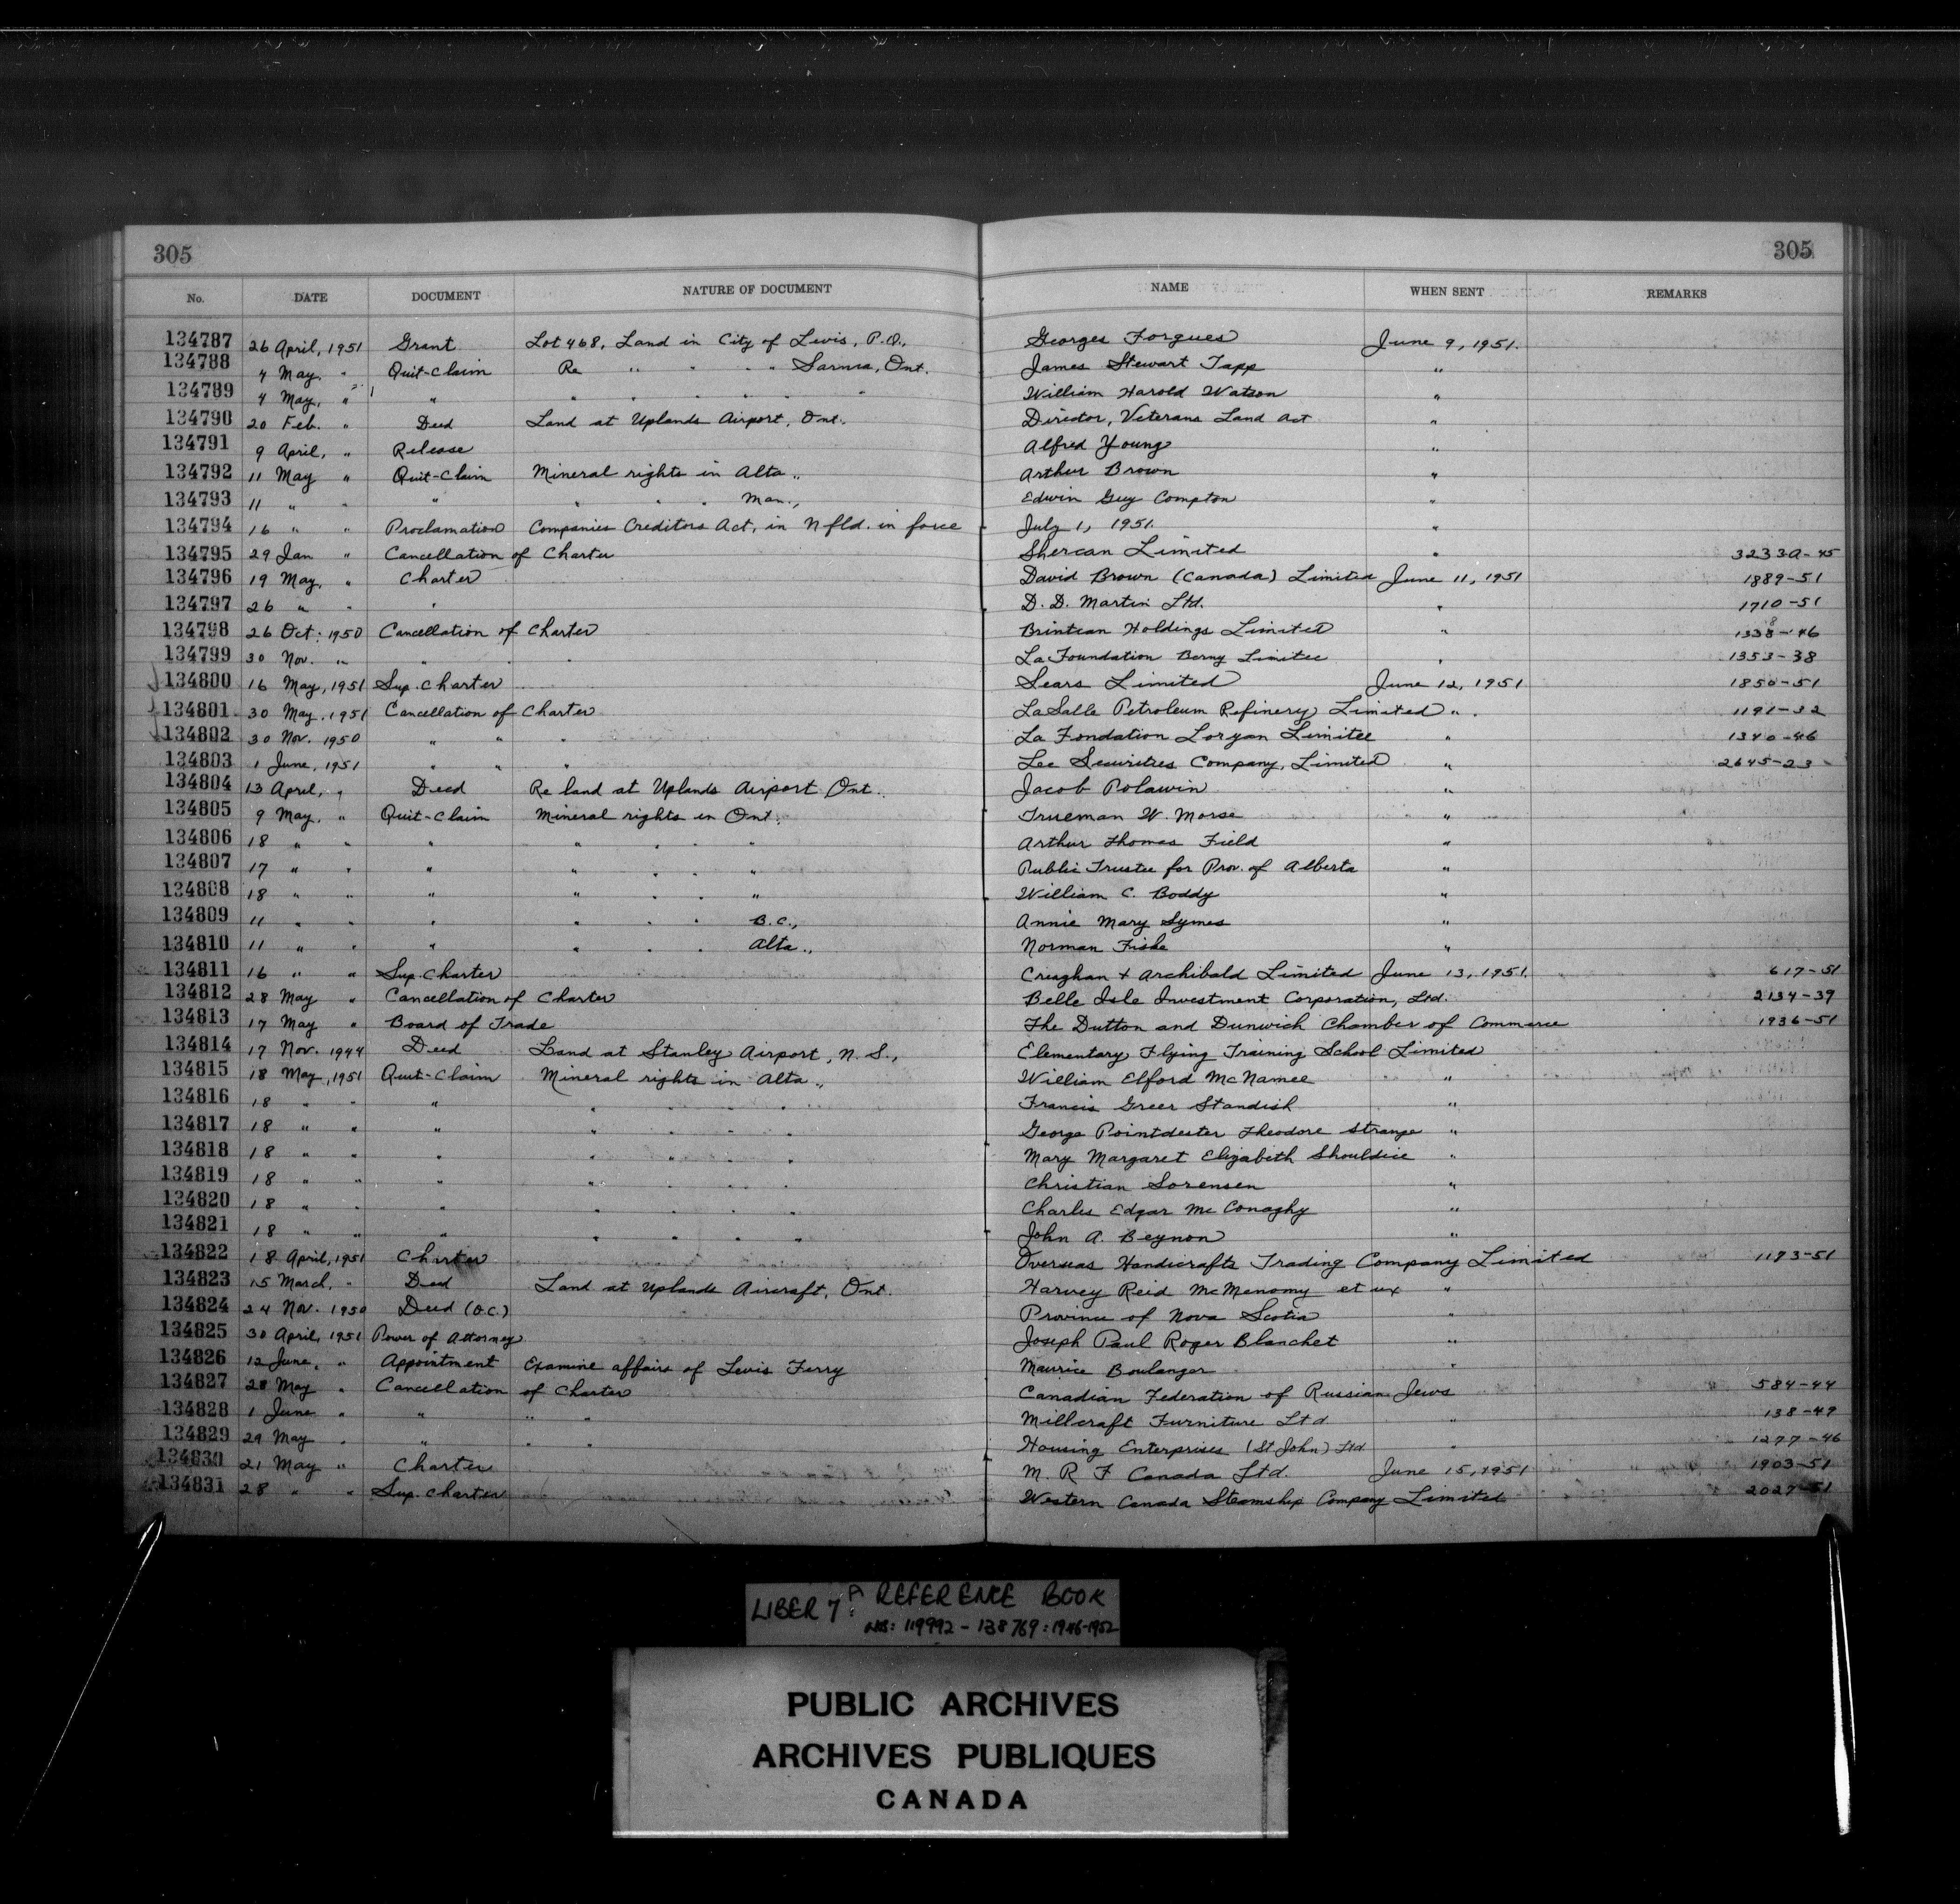 305 305
No. DATE DOCUMENT NATURE OF DOCUMENT NAME WHEN SENT REMARKS
134787 26 April, 1951 Grant Lot 468, Land in City of Levis, P.Q., Georges Forgues June 9, 1951.
134788 4 May, " Quit-Claim Re " " " " Sarnia, Ont. James Stewart Tapp "
134789 4 May, " " " " " " " " William Harold Watson "
134790 20 Feb. " Deed Land at Uplands Airport, Ont. Director, Veterans Land Act "
134791 9 April, " Release Alfred Young "
134792 11 May " Quit-Claim Mineral rights in Alta., Arthur Brown "
134793 11 " " " " " " Man., Edwin Guy Compton "
134794 16 " " Proclamation Companies Creditors Act, in Nfld. in force July 1, 1951. "
134795 29 Jan " Cancellation of Charter Shercan Limited " 3233A-45
134796 19 May, " Charter David Brown (Canada) Limited June 11, 1951 1889-51
134797 26 " " " D. D. Martin Ltd. " 1710-51
134798 26 Oct. 1950 Cancellation of Charter Brintcan Holdings Limited " 1338-46
134799 30 Nov. " " " " La Foundation Berny Limitee " 1353-38
134800 16 May, 1951 Sup. Charter Sears Limited June 12, 1951 1850-51
134801 30 May, 1951 Cancellation of Charter LaSalle Petroleum Refinery Limited " 1191-32
134802 30 Nov. 1950 " " " La Fondation Loryan Limitee " 1340-46
134803 1 June, 1951 " " " Lee Securities Company, Limited " 2645-23
134804 13 April, " Deed Re land at Uplands Airport Ont. Jacob Polawin "
134805 9 May, " Quit-Claim Mineral rights in Ont. Trueman W. Morse "
134806 18 " " " " " " " Arthur Thomas Field "
134807 17 " " " " " " " Public Trustee for Prov. of Alberta "
134808 18 " " " " " " " William C. Boddy "
134809 11 " " " " " " B.C., Annie Mary Symes "
134810 11 " " " " " " Alta., Norman Fiske "
134811 16 " " Sup. Charter Creaghan & Archibald Limited June 13, 1951. 617-51
134812 28 May " Cancellation of Charter Belle Isle Investment Corporation, Ltd. 2134-39
134813 17 May " Board of Trade The Dutton and Dunwich Chamber of Commerce 1936-51
134814 17 Nov. 1944 Deed Land at Stanley Airport, N.S., Elementary Flying Training School Limited
134815 18 May, 1951 Quit-Claim Mineral rights in Alta., William Elford McNamee "
134816 18 " " " " " " " Francis Greer Standish "
134817 18 " " " " " " " George Pointdester Theodore Strange "
134818 18 " " " " " " " Mary Margaret Elizabeth Shouldice "
134819 18 " " " " " " " Christian Sorensen "
134820 18 " " " " " " " Charles Edgar McConaghy "
134821 18 " " " " " " " John A. Beynon "
134822 18 April, 1951 Charter Overseas Handicrafts Trading Company Limited 1193-51
134823 15 March, " Deed Land at Uplands Aircraft, Ont. Harvey Reid McMenomy et ux "
134824 24 Nov. 1950 Deed (O.C.) Province of Nova Scotia "
134825 30 April, 1951 Power of Attorney Joseph Paul Roger Blanchet "
134826 12 June, " Appointment Examine affairs of Levis Ferry Maurice Boulanger "
134827 28 May " Cancellation of Charter Canadian Federation of Russian Jews 584-44
134828 1 June " " " " Millcraft Furniture Ltd " 138-49
134829 29 May " " " " Housing Enterprises (St John) Ltd " 1277-46
134830 21 May " Charter M. R F Canada Ltd. June 15, 1951 1903-51
134831 28 " " Sup. Charter Western Canada Steamship Company Limited 2027-51
LIBER 7A: REFERENCE BOOK
NOS: 119992 - 138769: 1946-1952
PUBLIC ARCHIVES
ARCHIVES PUBLIQUES
CANADA